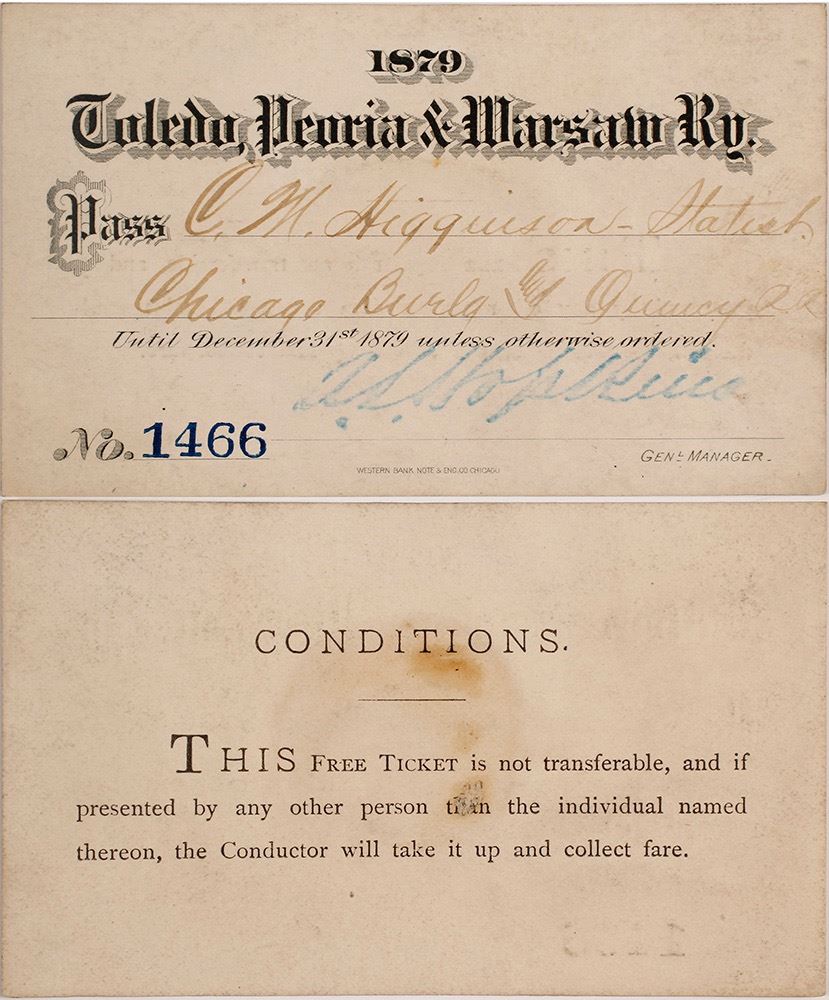 1879
Toledo, Peoria & Warsaw Ry.
Pass C. M. Higginson - Statist.
Chicago Burlg & Quincy RR
Until December 31st 1879 unless otherwise ordered.
A. L. Hopkins
No. 1466
GENL MANAGER.
WESTERN BANK NOTE & ENG. CO CHICAGO
CONDITIONS.
THIS FREE TICKET is not transferable, and if
presented by any other person than the individual named
thereon, the Conductor will take it up and collect fare.